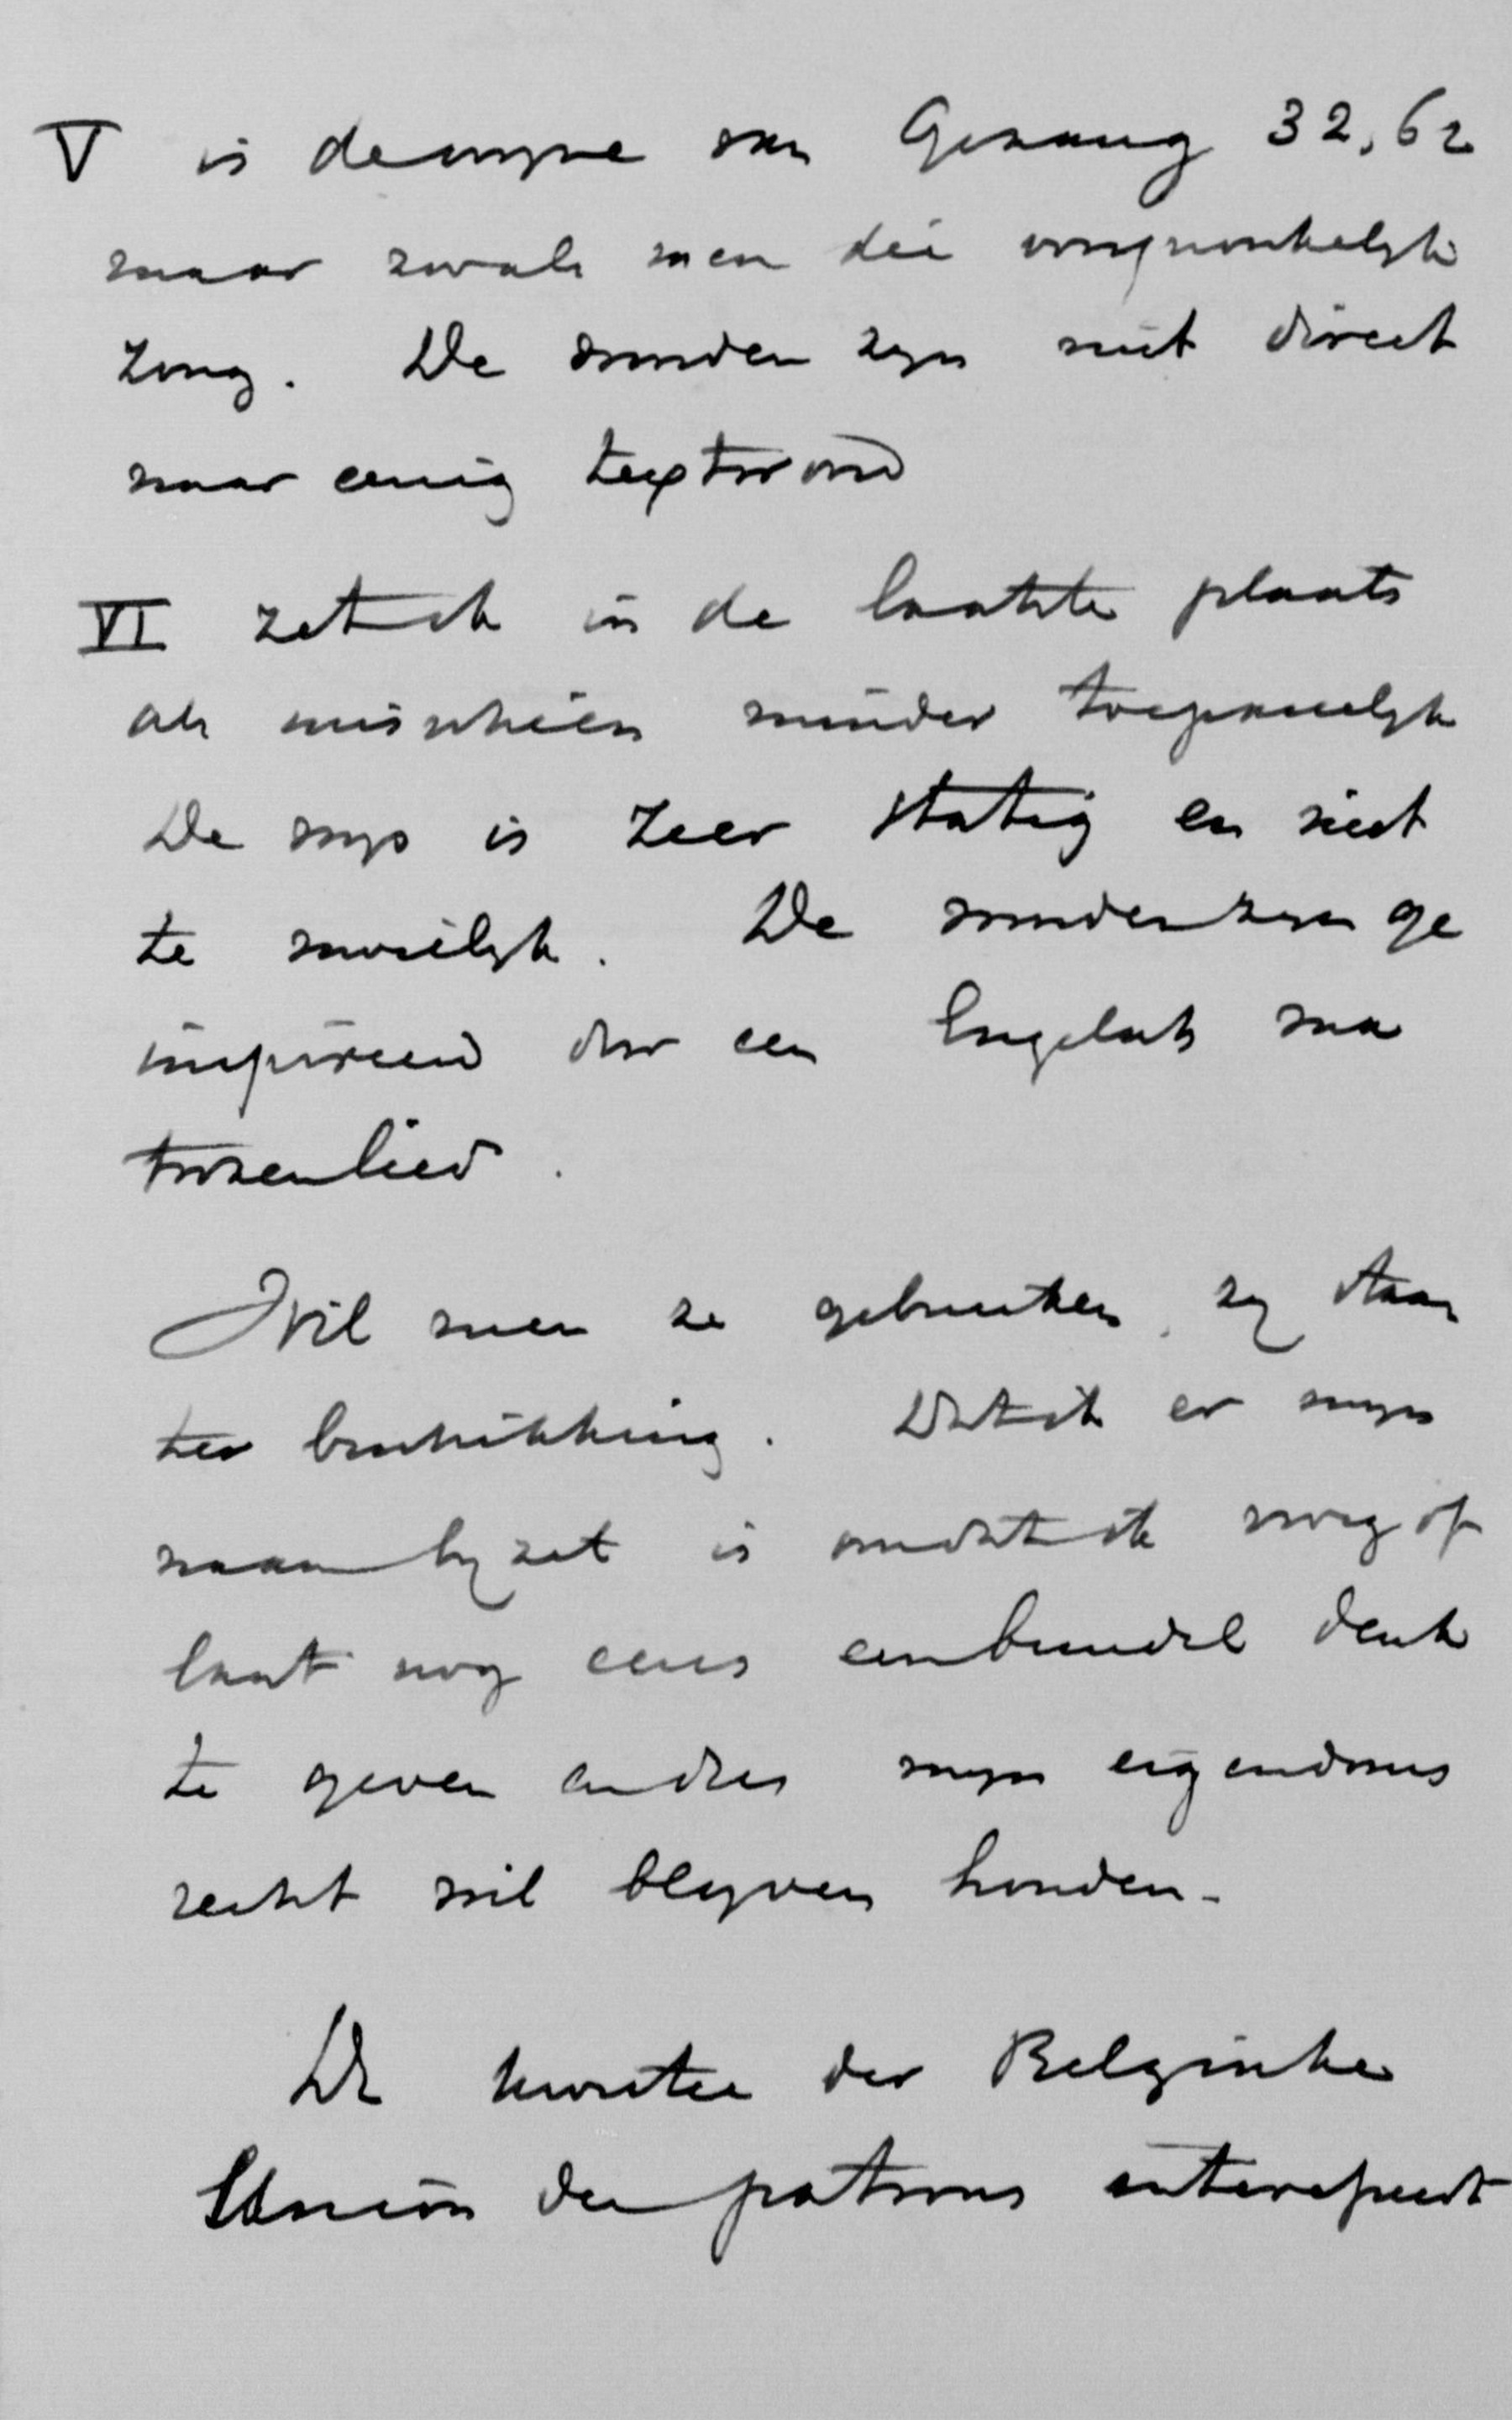 V is de wyze van Gezang 32, 62
maar zooals men die oorspronkelyk
zong. De woorden zyn niet direct
naar eenig textwoord
VI zet ik in de laatste plaats
als misschien minder toepasselyk
De wys is zeer statig en niet
te moeilyk. De woorden zyn ge
inspireerd door een Engelsch ma
trozenlied.
Wil men ze gebruiken, zy staan
ter beschikking. Dat ik er myn
naam by zet is omdat ik vroeg of
laat nog eens een bundel denk
te geven en dus myn eigendoms
recht wil blyven houden.
De kwestie der Belgische
Union der patroons interesseert